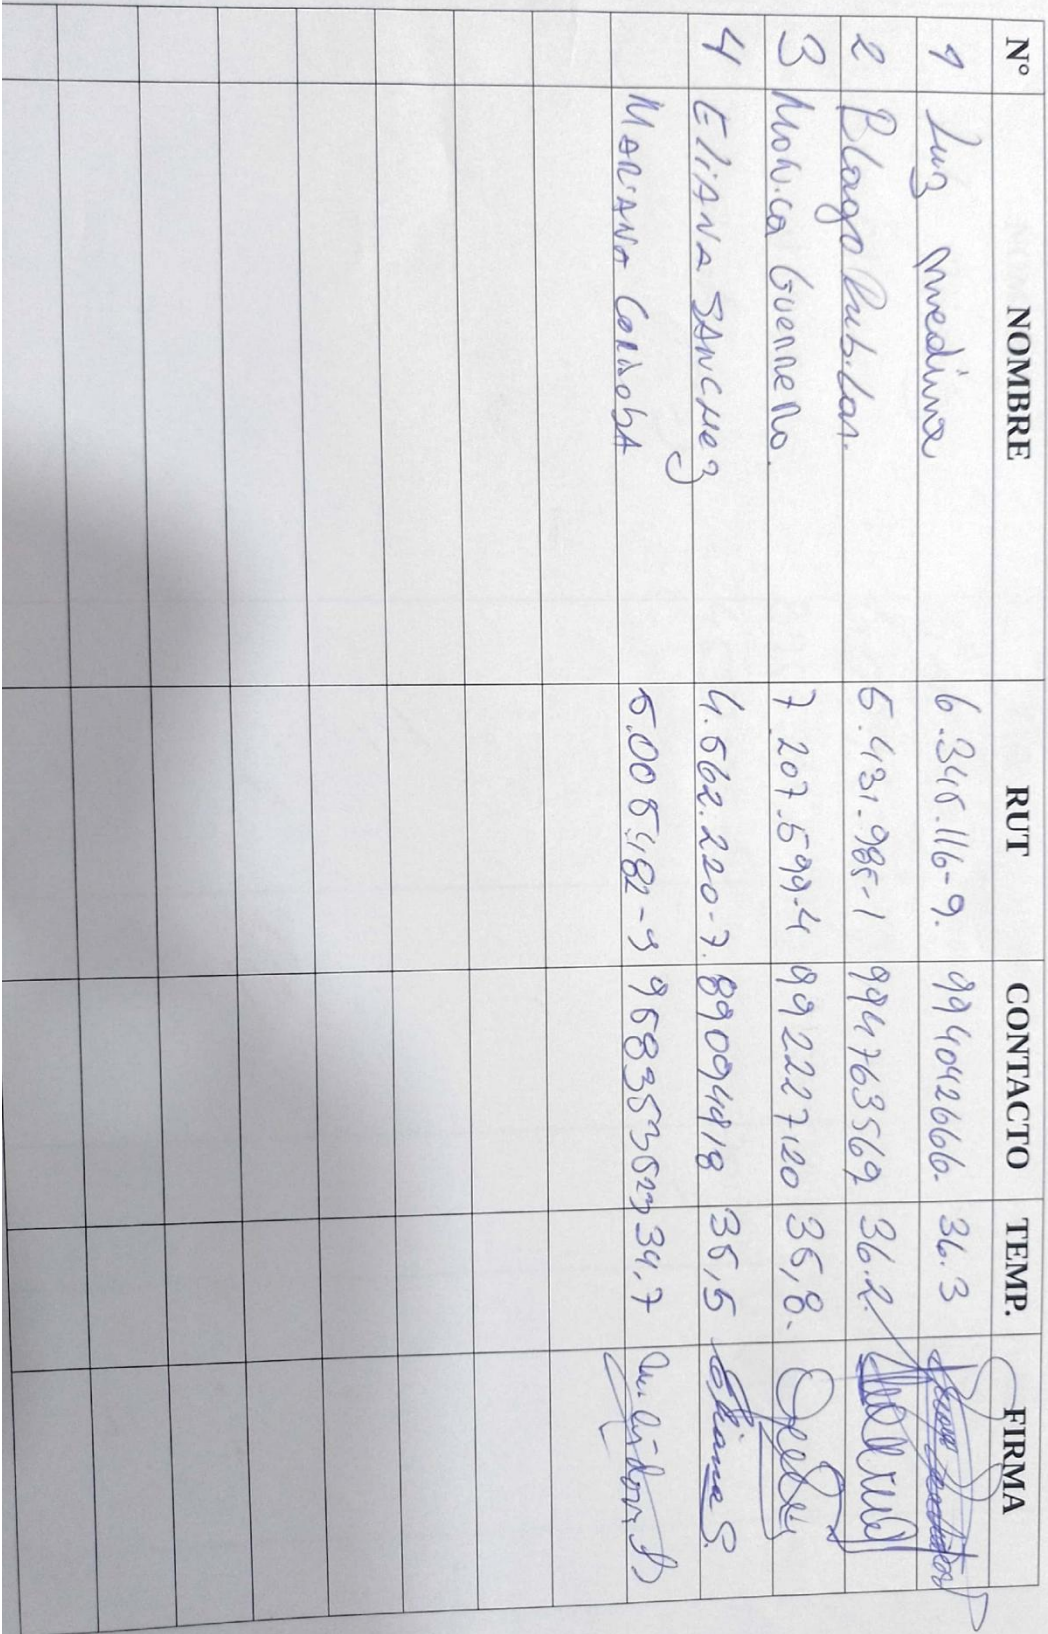 N° NOMBRE RUT CONTACTO TEMP. FIRMA
1 Luz medina 6.345.116-9. 994042666. 36.3
2 5.431.985-1 994763569 36.2.
3 Monica Guerrero. 7.207.599-4 992227120 35,8.
4 ELIANA SANCHEZ 4.562.220-7. 89094918 35,5 Eliana S.
MARIANA CORDOBA 5.005.182-9 34,7